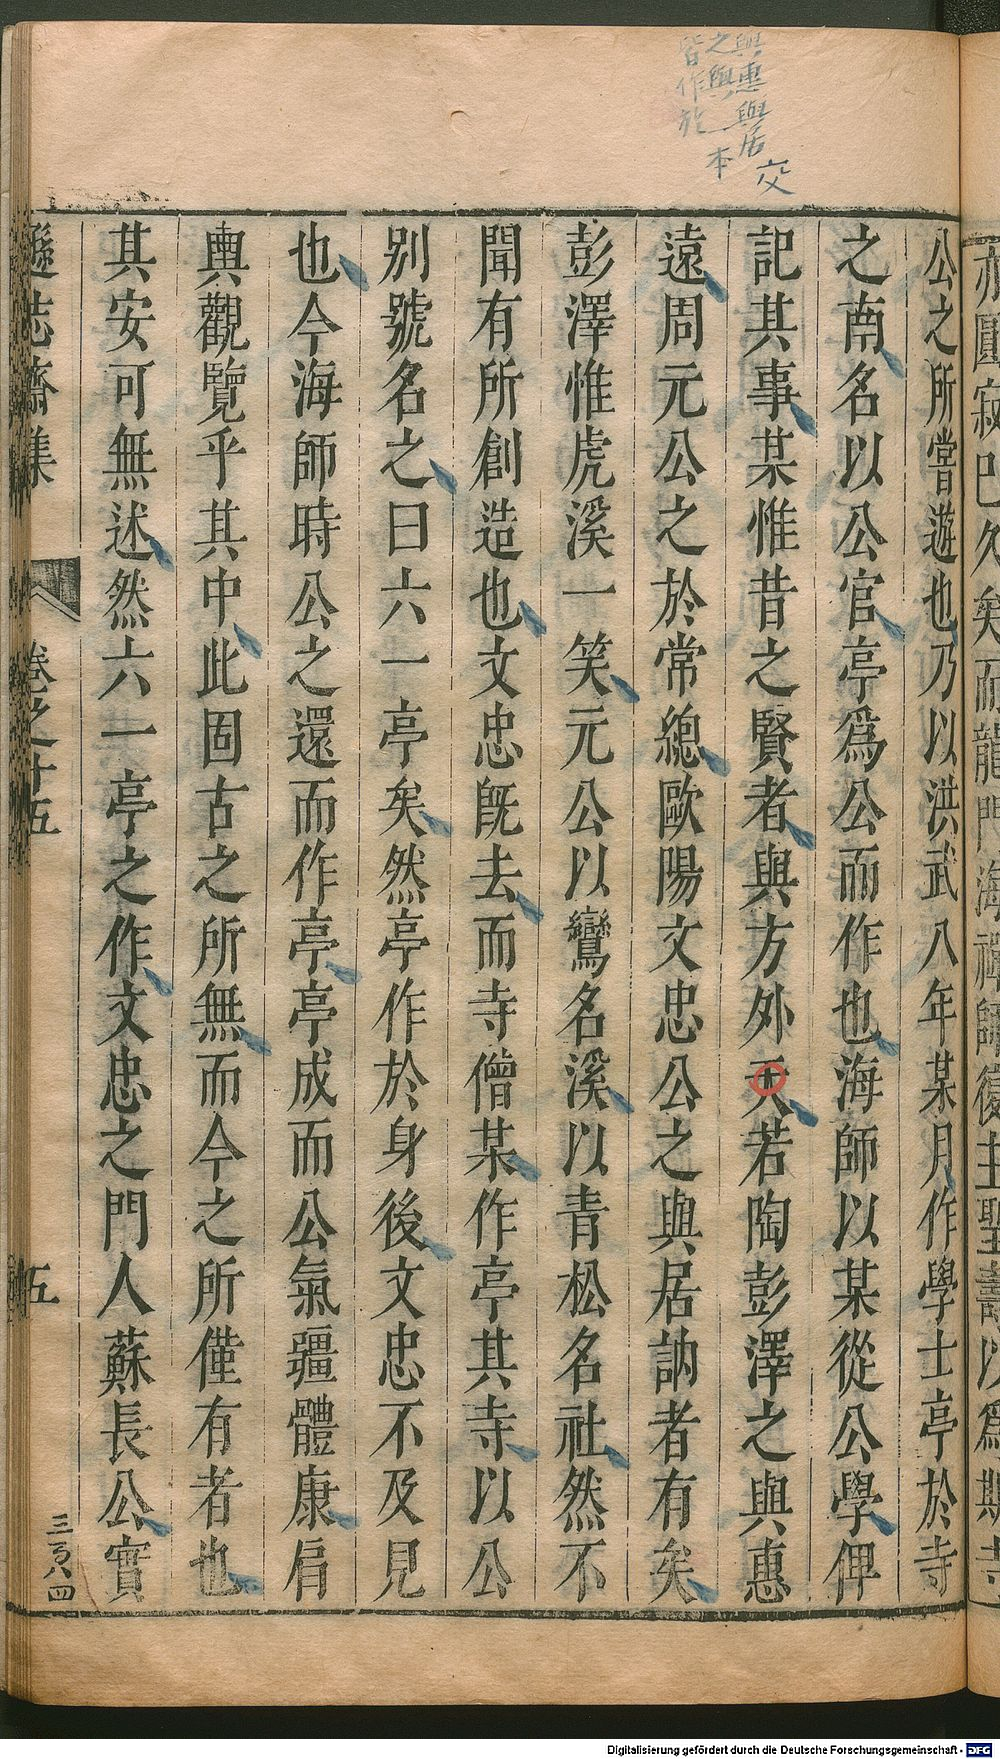 交
與惠與居
之與一本
皆作於
亦圓寂已久矣而龍門海禪師復主聖壽以爲斯寺
公之所嘗遊也乃以洪武八年某月作學士亭於寺
之南名以公官亭爲公而作也海師以某從公學俾
記其事某惟昔之賢者與方外天若陶彭澤之與惠
遠周元公之於常總歐陽文忠公之與居訥者有矣
彭澤惟虎溪一笑元公以鸞名溪以青松名社然不
聞有所創造也文忠旣去而寺僧某作亭其寺以公
別號名之曰六一亭矣然亭作於身後文忠不及見
也今海師時公之還而作亭亭成而公氣疆體康肩
輿觀覽乎其中此固古之所無而今之所僅有者也
其安可無述然六一亭之作文忠之門人蘇長公實
遜志齋集 卷之十五 五
三百八四
Digitalisierung gefördert durch die Deutsche Forschungsgemeinschaft - DFG